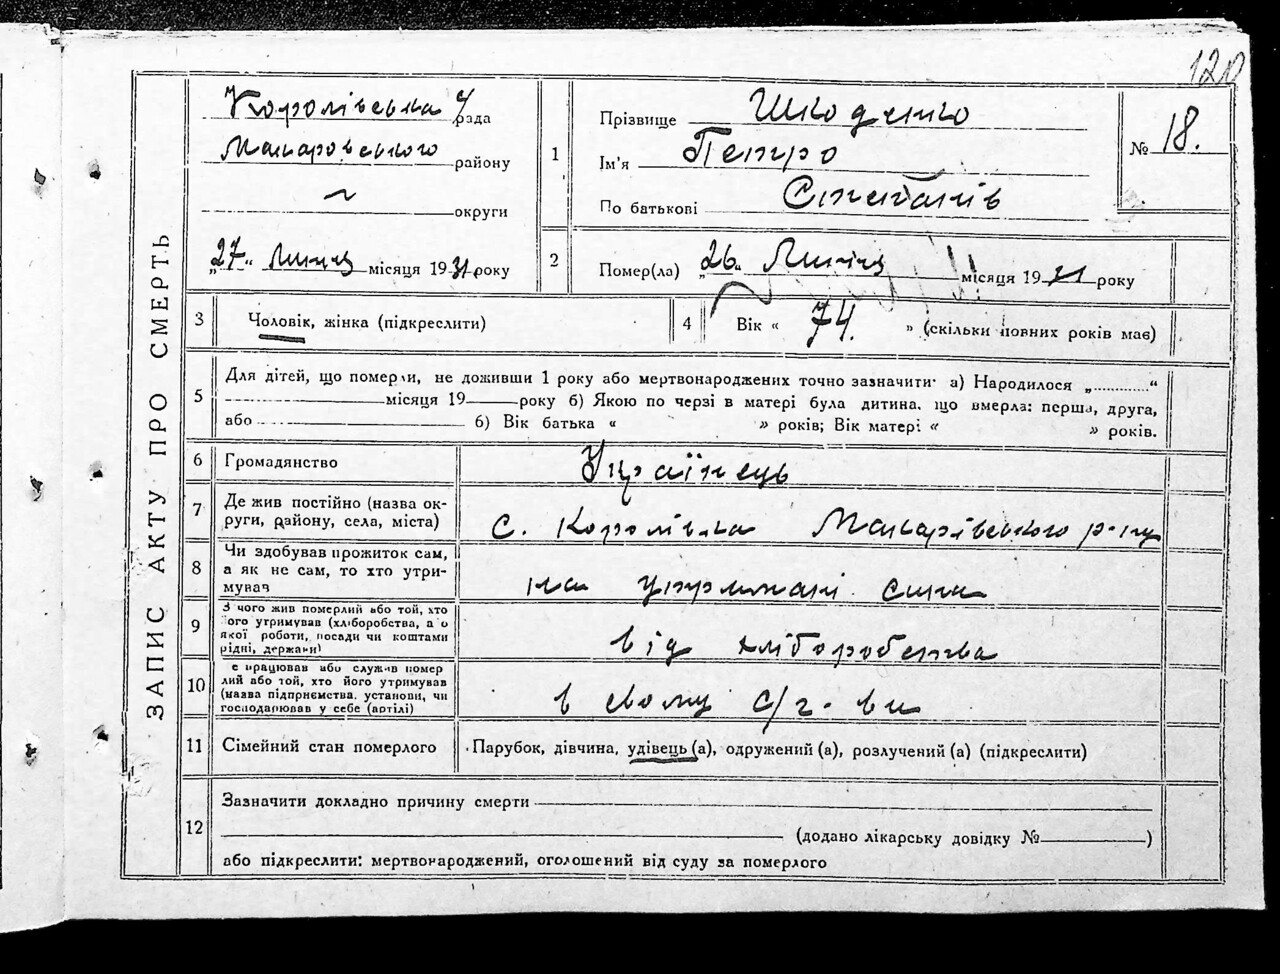 120
ЗАПИС АКТУ ПРО СМЕРТЬ
Королівська рада
Макаровського району
округи
„27“ Липця місяця 1931 року
1
Прізвище Шкоденко
Ім'я Петро
По батькові Степанів
№ 18.
2
Помер(ла) „26“ Липця місяця 1931 року
3
Чоловік, жінка (підкреслити)
4
Вік « 74. » (скільки повних років мав)
5
Для дітей, що померли, не доживши 1 року або мертвонароджених точно зазначити: а) Народилося „............“
місяця 19 року б) Якою по черзі в матері була дитина, що вмерла: перша, друга,
або 6) Вік батька « » років; Вік матері « » років.
6
Громадянство
Українець
7
Де жив постійно (назва ок-
руги, району, села, міста)
с. Королівка Макарівського р-ну
8
Чи здобував прожиток сам,
а як не сам, то хто утри-
мував
на утримані сина
9
З чого жив померлий або той, хто
його утримував (хліборобства, а о
якої роботи, посади чи коштами
рідні, держави)
від хліборобства
10
е працював або служив помер
лий або той, хто його утримував
(назва підприємства, установи, чи
господарював у себе (артілі)
в свому с/г-ви
11
Сімейний стан померлого
Парубок, дівчина, удівець (а), одружений (а), розлучений (а) (підкреслити)
12
Зазначити докладно причину смерти
(додано лікарську довідку № )
або підкреслити: мертвонароджений, оголошений від суду за померлого